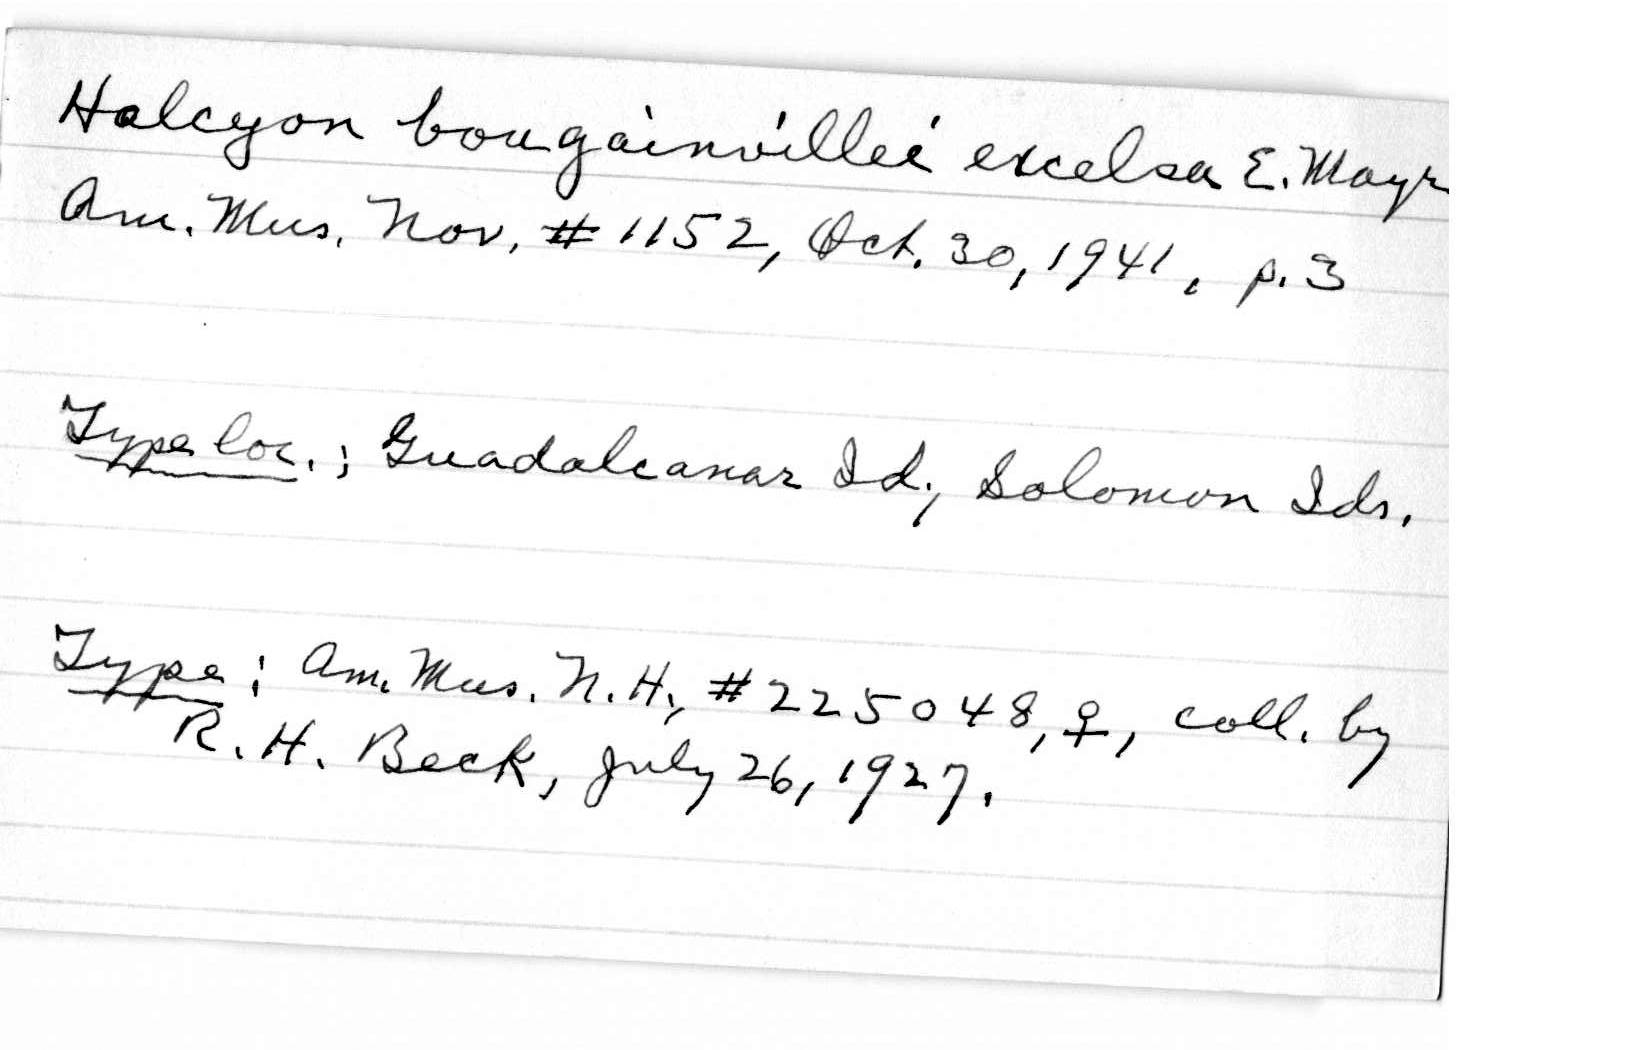 Halcyon bougainvillei excelsa E. Mayr
Am. Mus. Nov. #1152, Oct. 30, 1941, p. 3
Type loc.; Guadalcanar Id., Solomon Ids.
Type: Am. Mus. N.H., #225048, ♀, coll. by
R. H. Beck, July 26, 1927.